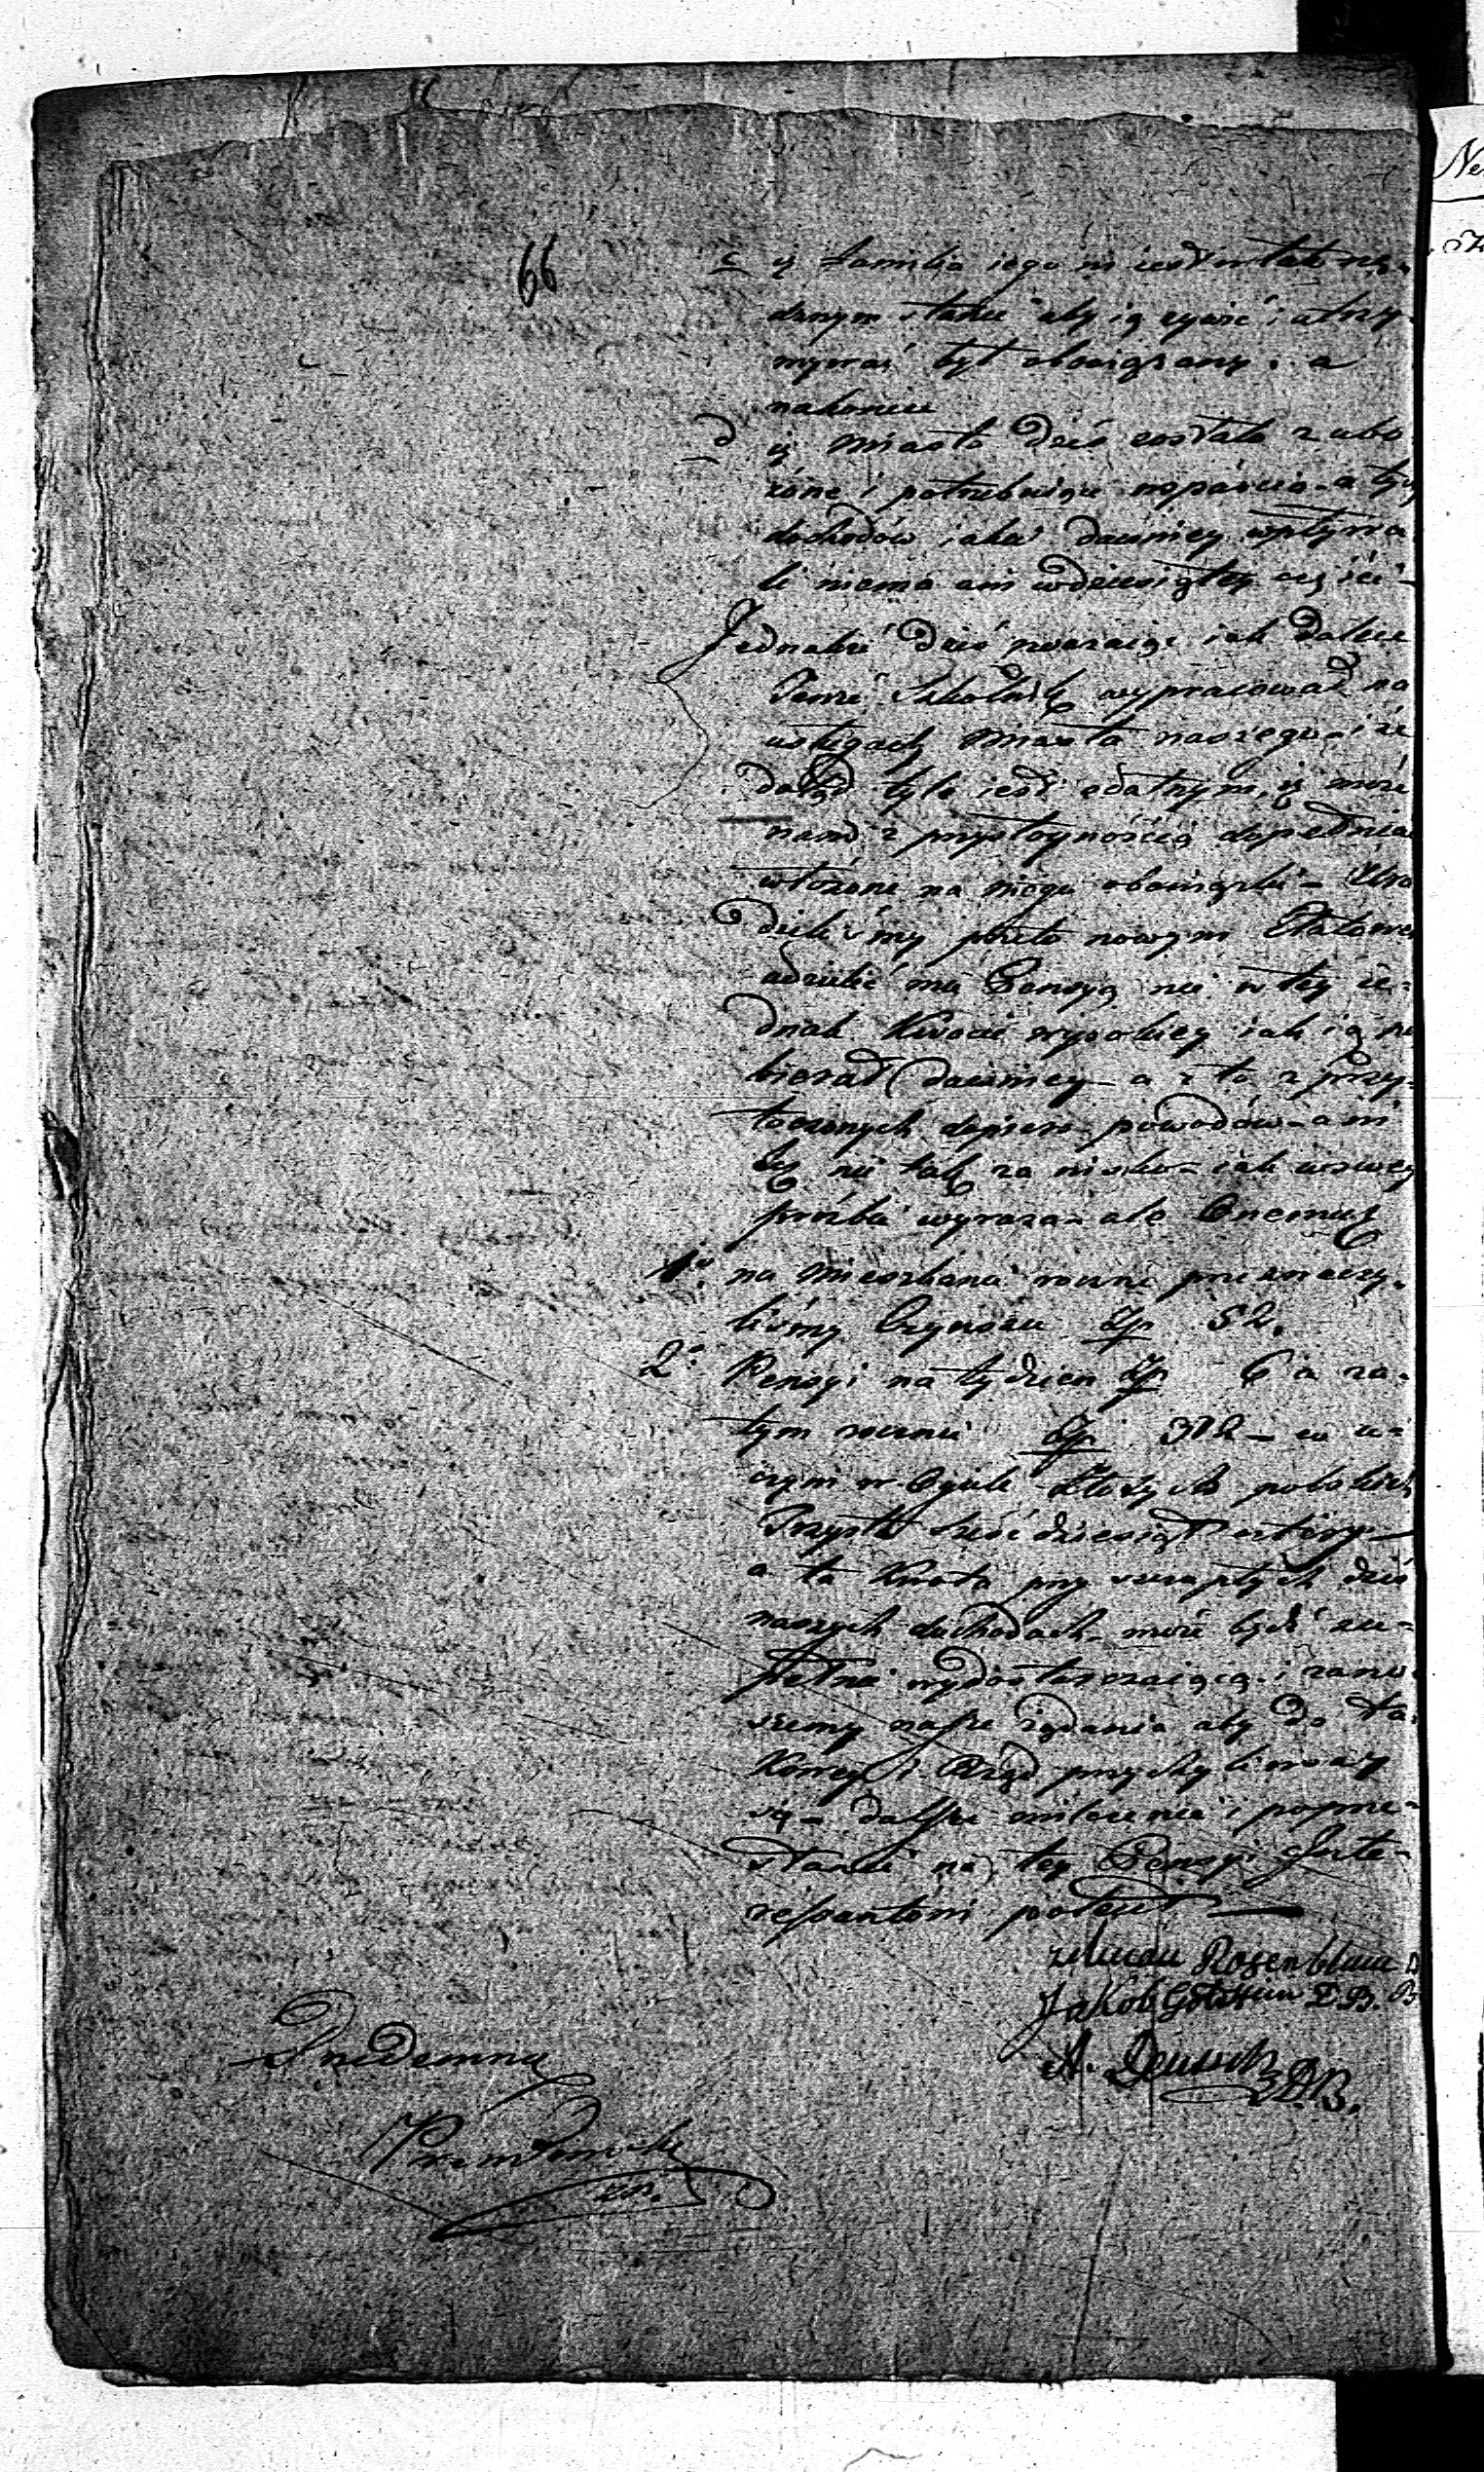 66
c iż familia iego nie iest w tak nę-
dznym stanie aby ią żywić i utrzy-
mywać był obowiązany. a
nakoniec
d iż Miasto dziś zostało zubo
żone i potrzebuiące wsparcia a tych
dochodów iakie dawniey wpływa
li niema ani w dziesiątey części -
Jednakże dziś zważaiąc iak dalece
Tenże Szkolnik wypracował na
usługach Miasta naszego i że
dotąd tyle iest zdatnym, iż może
nam z przystoynością dopełniać
włożone na niego obowiązki - Ura
dziliśmy przeto nowym Etatowe
udzielić mu Pensyą nie w tey ie-
dnak Kwocie wysokiey iak ią po
bierał dawniey - a i to z przy-
toczonych dopiero powodów - ani
też nie tak za nisko - iak w swey
prośbie wyraża - ale Onemuż
1o na Mieszkanie rocznie przeznaczy-
liśmy Czynszu Zp 52.
2o Pensyi na tydzień Zp 6 a za-
tym rocznie Zp 312 - co u-
czyni w Ogule Złotych polskich
Trzysta sześćdziesiąt cztery -
a ta Kwota przy szczupłych dziś
naszych dochodach - może bydź zu-
pełnie wydostarczaiącą i zano-
szemy nasze żądania aby do ta-
kowey i Rząd przychylił
się - dalsze milczenie i poprze-
stanie na tey Pensyi Inte-
ressantom polecił -
Rosenblum D B
Jakob Goldstein D.B.
A. Deutsch D.B.
Przedemną